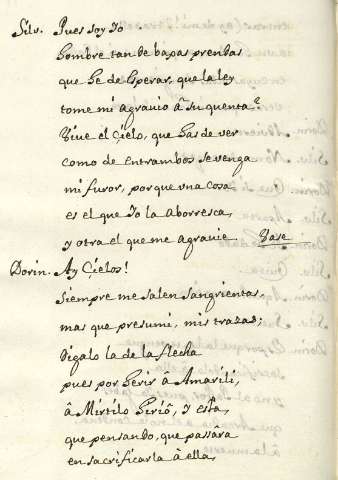 Silv. Pues soy Yo
hombre tan de baxas prendas
que he de esperar, que la ley
tome mi agravio â su quenta?
Vive el Çielo, que has de ver
como de entrambos se venga
mi furor, porque una cosa
es el que Yo la aborresca,
y otra el que me agravie. Vase
Dorin. Ay Çielos!
siempre me salen sangrientas,
mas que presumi, mis trazas;
digalo la de la flecha
pues por herir â Amarili,
â Mirtilo hiriô, y esta,
que pensando, que passâra
en sacrificarla â ella,